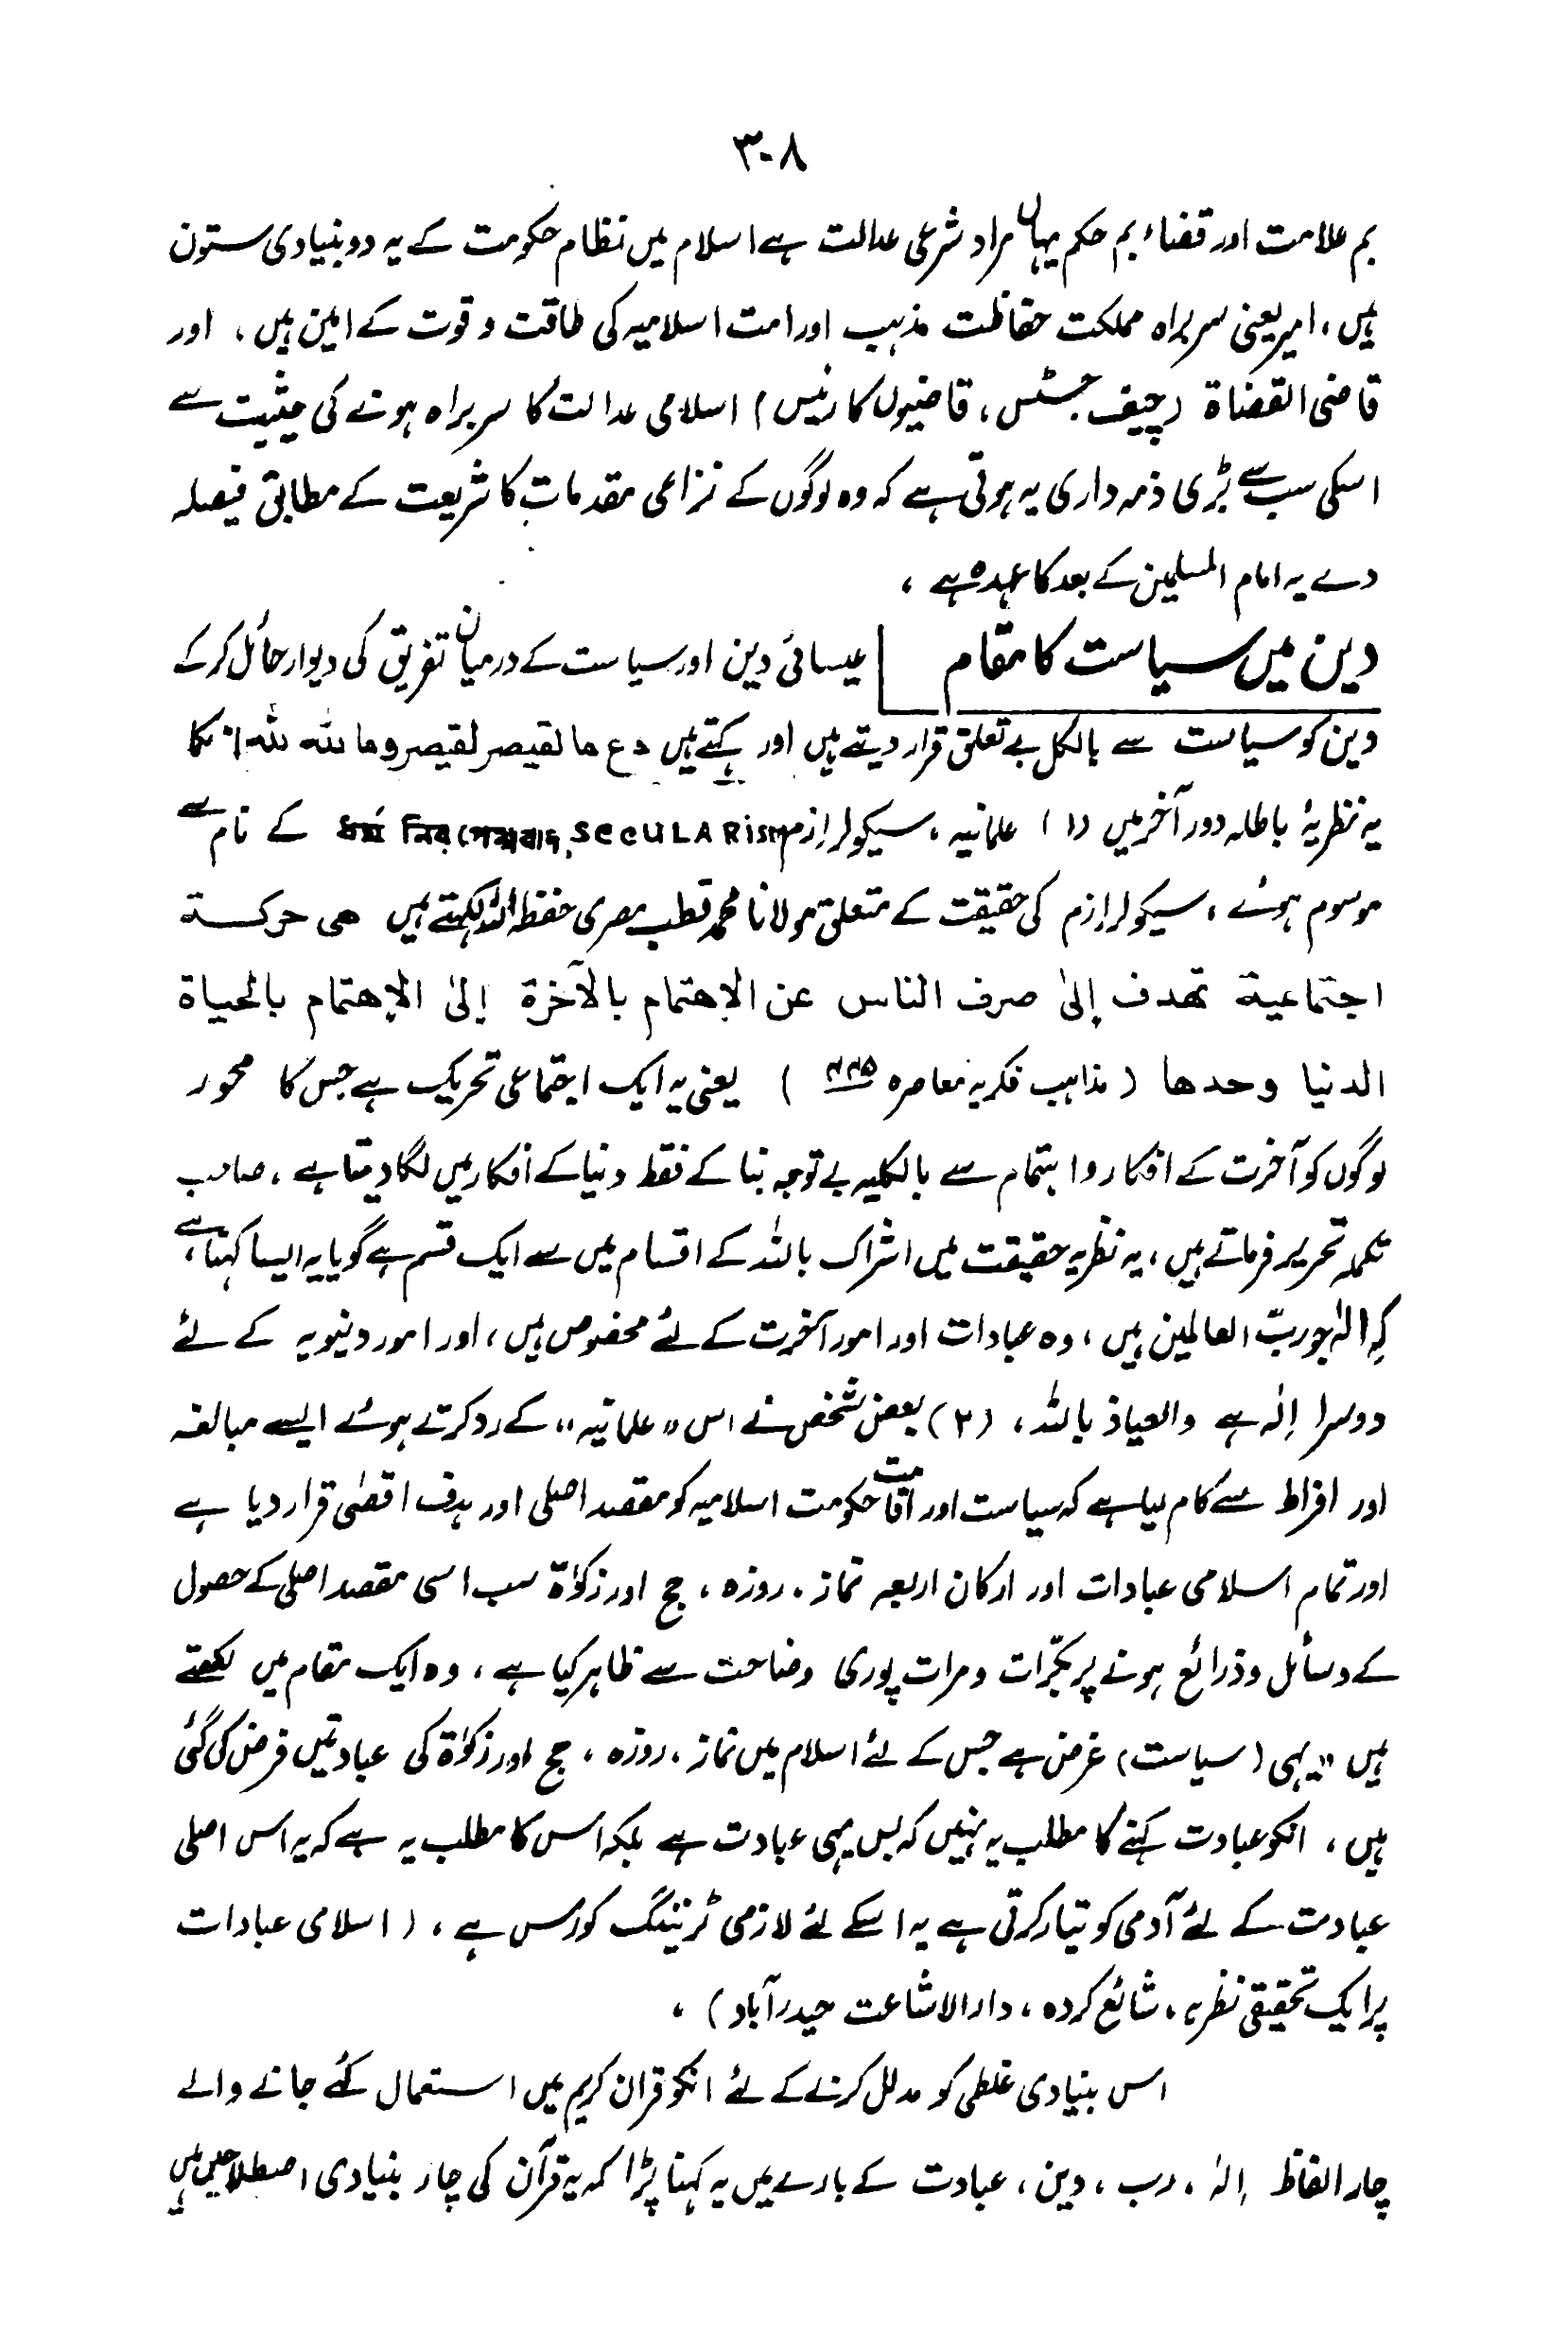 ۳۰۸
بم علامت اور قضاء بم حکم یہاں مراد شرعی عدالت ہے اسلام میں نظام حکومت کے یہ دو بنیادی ستون
ہیں ، امیر یعنی سربراہ مملکت حفاظت مذہب اور امت اسلامیہ کی طاقت و قوت کے امین ہیں ، اور
قاضی القضاۃ (چیف جسٹس ، قاضیوں کا رئیس) اسلامی عدالت کا سربراہ ہونے کی حیثیت سے
اسکی سب سے بڑی ذمہ داری یہ ہوتی ہے کہ وہ لوگوں کے نزاعی مقدمات کا شریعت کے مطابق فیصلہ
دے یہ امام المسلمین کے بعد کا عہدہ ہے ،
دین میں سیاست کا مقام | عیسائی دین اور سیاست کے درمیان تفریق کی دیوار حائل کر کے
دین کو سیاست سے بالکل بے تعلق قرار دیتے ہیں اور کہتے ہیں دع ما لقیصر لقیصر وما للہ للہ انکا
یہ نظریۂ باطلہ دور آخر میں (۱) علمانیہ ، سیکولرازم SECULARISM کے نام سے
موسوم ہوئے ، سیکولرازم کی حقیقت کے متعلق مولانا محمد قطب مصری حفظہ اللہ لکھتے ہیں ھی حرکة
اجتماعیة تھدف إلیٰ صرف الناس عن الإهتمام بالآخرة إلیٰ الإهتمام بالحیاة
الدنیا وحدھا (مذاہب فکریہ معاصرہ ۴۴۵) یعنی یہ ایک اجتماعی تحریک ہے جس کا محور
لوگوں کو آخرت کے افکار و اہتمام سے بالکلیہ بے توجہ بنا کے فقط دنیا کے افکار میں لگا دیتا ہے ، صاحب
تکملہ تحریر فرماتے ہیں ، یہ نظریہ حقیقت میں اشراک باللہ کے اقسام میں سے ایک قسم ہے گویا یہ ایسا کہتا ہے ،
کہ الٰہ جو ربّ العالمین ہیں ، وہ عبادات اور امور آخرت کے لئے مخصوص ہیں ، اور امور دنیویہ کے لئے
دوسرا إلٰہ ہے والعیاذ باللہ ، (۲) بعض شخص نے اس “علمانیہ” کے رد کرتے ہوئے ایسے مبالغہ
اور افراط سے کام لیا ہے کہ سیاست اور اقامت حکومت اسلامیہ کو مقصد اصلی اور ہدف اقصٰی قرار دیا ہے
اور تمام اسلامی عبادات اور ارکان اربعہ نماز ۔ روزہ ، حج اور زکوٰۃ سب اسی مقصد اصلی کے حصول
کے وسائل و ذرائع ہونے پر بکرّات و مرات پوری وضاحت سے ظاہر کیا ہے ، وہ ایک مقام میں لکھتے
ہیں “یہی (سیاست) غرض ہے جس کے لئے اسلام میں نماز ، روزہ ، حج اور زکوٰۃ کی عبادتیں فرض کی گئی
ہیں ، انکو عبادت کہنے کا مطلب یہ نہیں کہ بس یہی عبادت ہے بلکہ اس کا مطلب یہ ہے کہ یہ اس اصلی
عبادت کے لئے آدمی کو تیار کرتی ہے یہ اسکے لئے لازمی ٹریننگ کورس ہے ، (اسلامی عبادات
پر ایک تحقیقی نظر ، شائع کردہ ، دارالاشاعت حیدرآباد) ،
اس بنیادی غلطی کو مدلل کرنے کے لئے انکو قران کریم میں استعمال کئے جانے والے
چار الفاظ إلہٰ ، رب ، دین ، عبادت کے بارے میں یہ کہنا پڑا کہ یہ قرآن کی چار بنیادی اصطلاحیں ہیں